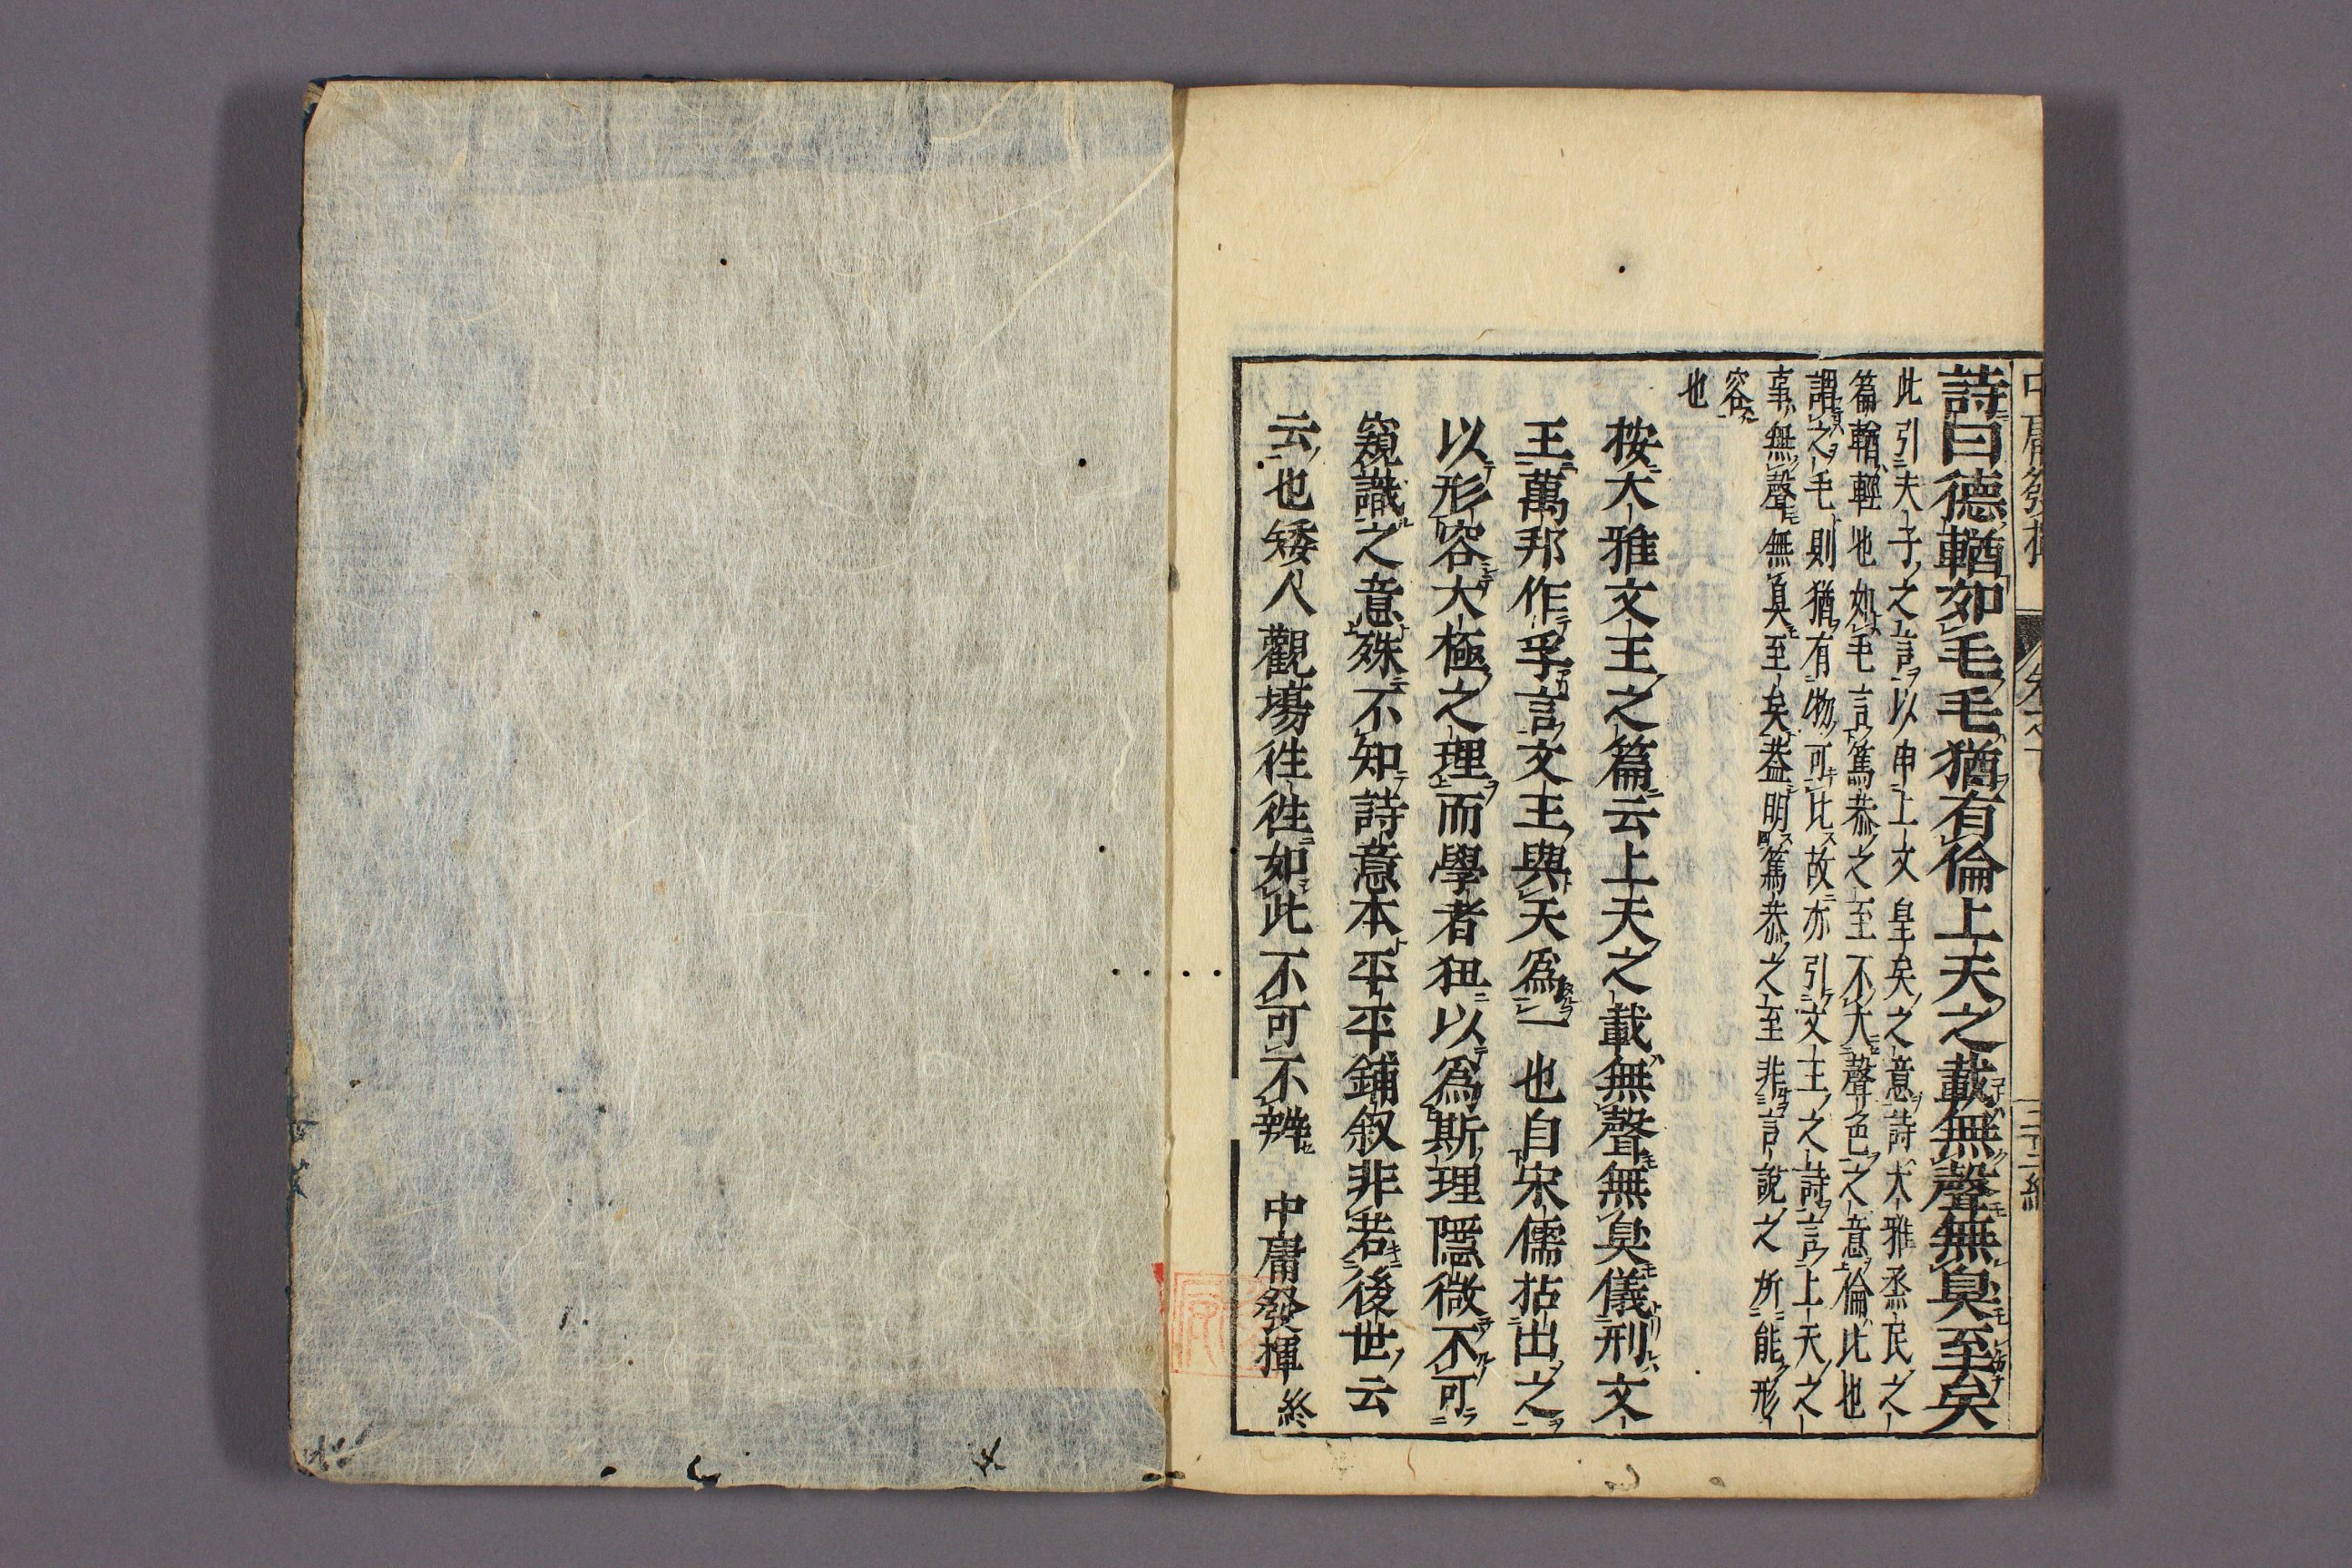 詩曰德輶如毛毛猶有倫上天之載無聲無臭至矣
此引夫子之言以申上文皇矣之意詩大雅烝民之
篇輶輕也如毛言篤恭之至不大聲色之意倫比也
謂之毛則猶有物可比故亦引文王之詩言上天之
事無聲無臭至矣蓋明篤恭之至非言說之所能形
容
也
按大雅文王之篇云上天之載無聲無臭儀刑文
王萬邦作孚言文王與天爲一也自宋儒拈出之
以形容大極之理而學者狃以爲斯理隱微不可
窺識之意殊不知詩意本平平鋪叙非若後世云
云也矮人觀場徃徃如此不可不辨 中庸發揮終